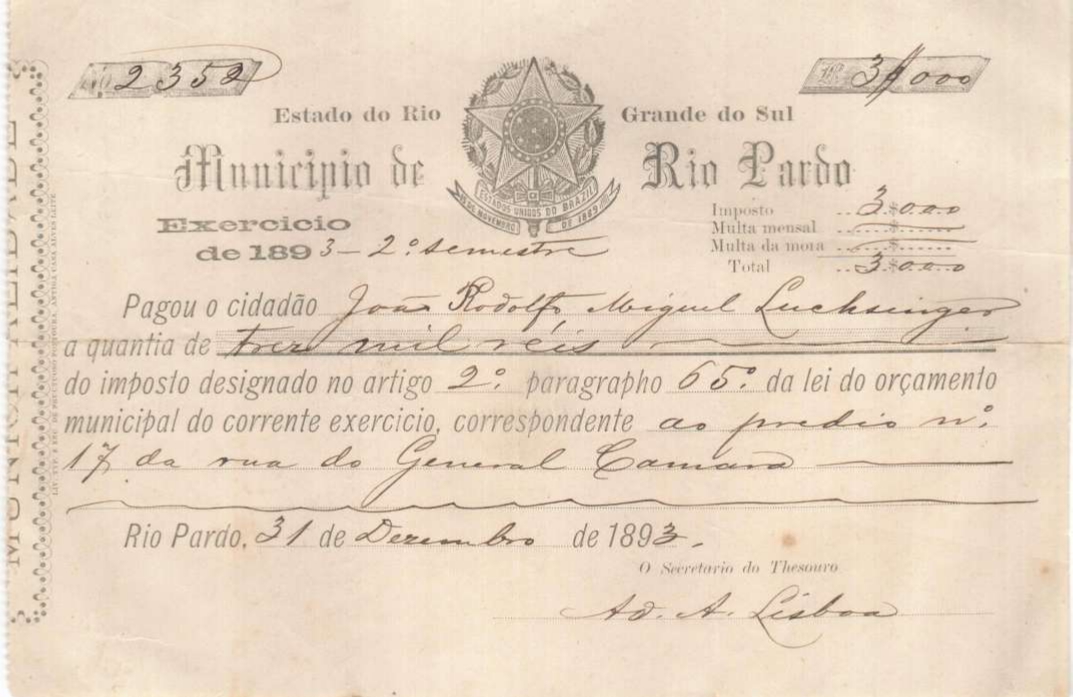 Nº 2352
Rs. 3$000
Estado do Rio Grande do Sul
Municipio de Rio Pardo
ESTADOS UNIDOS DO BRAZIL
15 DE NOVEMBRO DE 1889
Exercicio
de 1893 - 2º semestre
Imposto ..3$000
Multa mensal ....$......
Multa da mora ....$......
Total ..3$000
Pagou o cidadão João Rodolfo Miguel Luchsinger
a quantia de trez mil réis
do imposto designado no artigo 2º paragrapho 65º da lei do orçamento
municipal do corrente exercicio, correspondente ao predio nº
17 da rua do General Camara
Rio Pardo, 31 de Dezembro de 1893.
O Secretario do Thesouro
Ad. A. Lisboa